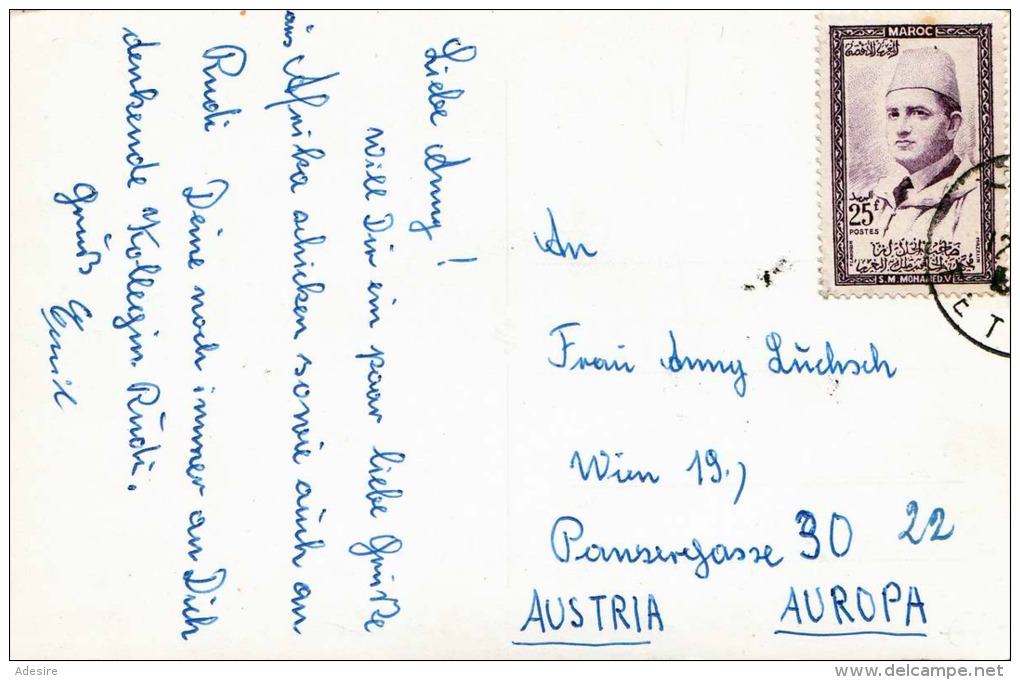 Liebe Anny!
will Dir ein paar liebe Grüße
aus Afrika schicken sowie auch an
Rudi Deine noch immer an Dich
denkende Kollegin Rudi.
Gruß Emil
MAROC
25 F
POSTES
S.M. MOHAMED V
ET
An
Frau Anny Luchsch
Wien 19.,
Panzergasse 30 22
AUSTRIA AUROPA
Adesire
www.delcampe.net